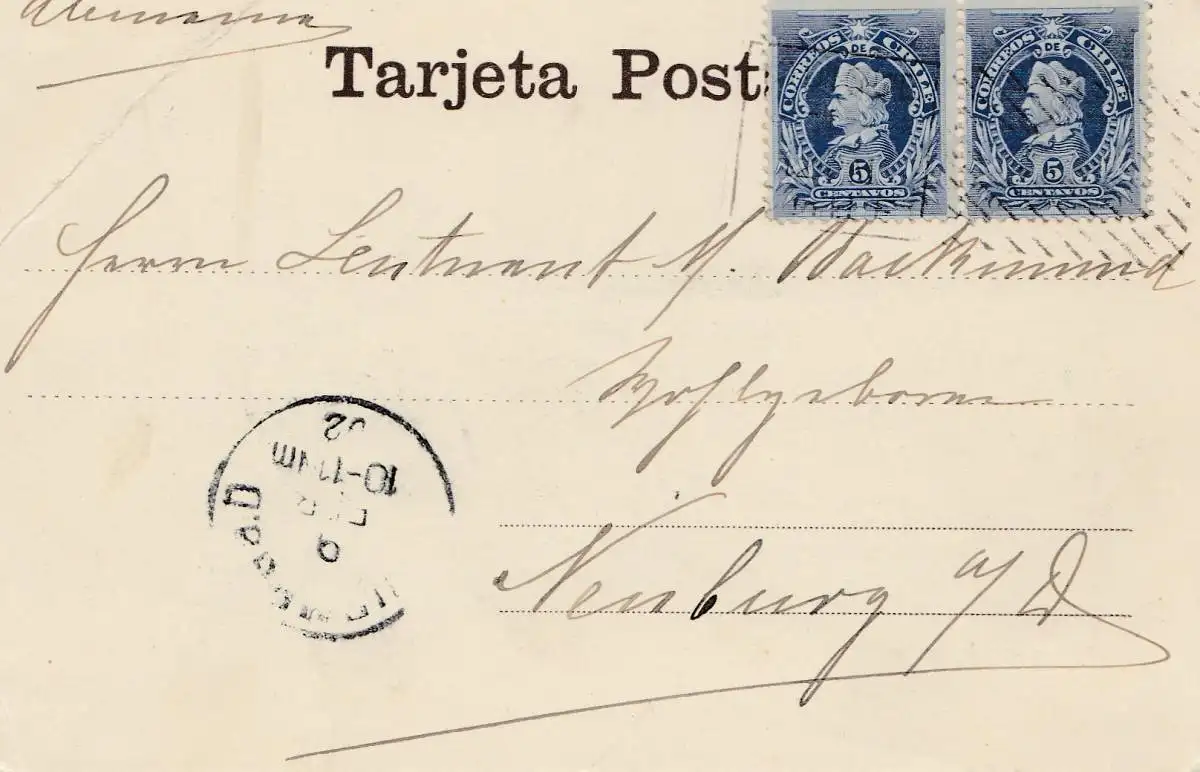 Alemania
Tarjeta Post
CORREOS DE CHILE
5
CENTAVOS
CORREOS DE CHILE
5
CENTAVOS
Herrn Leutnant M.
Wohlgeboren
Neuburg a/D
02
10-11 Vm
9